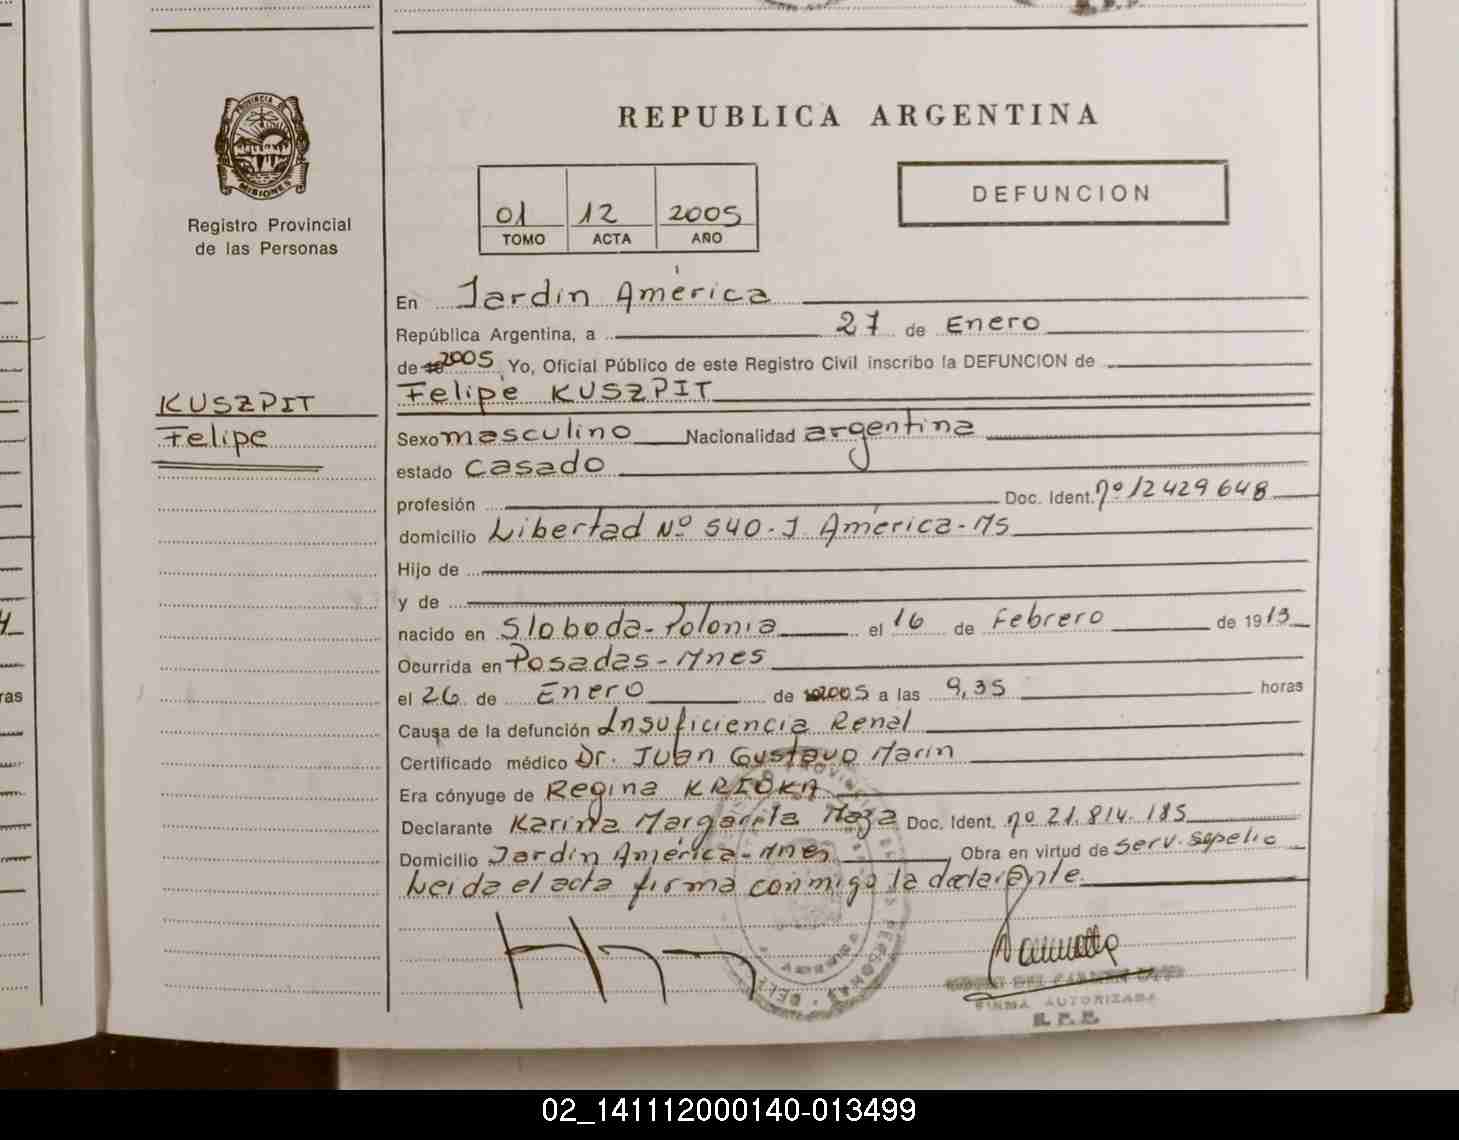 PROVINCIA DE
MISIONES
Registro Provincial
de las Personas
REPUBLICA ARGENTINA
01 12 2005
TOMO ACTA AÑO
DEFUNCION
En Jardín América
República Argentina, a 27 de Enero
de 2005 Yo, Oficial Público de este Registro Civil inscribo la DEFUNCION de
KUSZPIT
Felipe
Felipe KUSZPIT
Sexo masculino Nacionalidad argentina
estado casado
profesión Doc. Ident. nº 12429648
domicilio Libertad Nº 540-J. América-Ms
Hijo de
y de
nacido en Sloboda-Polonia el 16 de Febrero de 1913
Ocurrida en Posadas-Mnes
el 26 de Enero de 2005 a las 9,35 horas
Causa de la defunción Insuficiencia Renal
Certificado médico Dr. Juan Gustavo Marin
Era cónyuge de Regina
Declarante Karina Margarita Maza Doc. Ident. nº 21.814.185
Domicilio Jardín América-Mnes, Obra en virtud de serv. sepelio
Leida el acta firma conmigo la declarante
FIRMA AUTORIZADA
R. P. P.
02_141112000140-013499